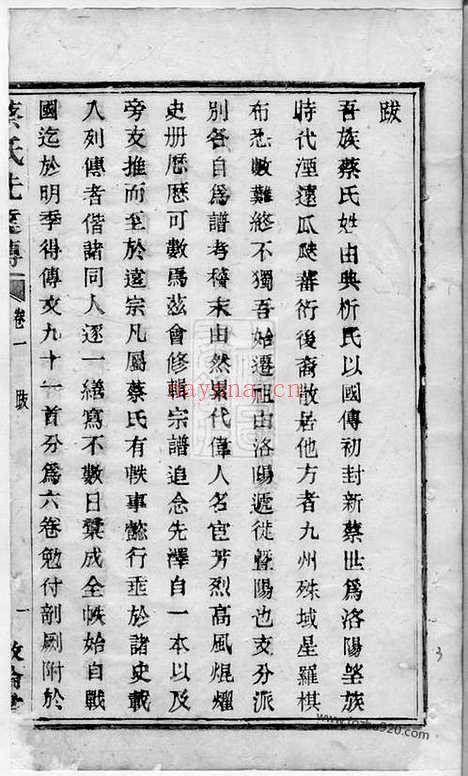 跋
吾族蔡氏姓由典析氏以國傳初封新蔡世爲洛陽望族
時代湮遠瓜瓞蕃衍後裔散居他方者九州殊域星羅棋
布悉數難終不獨吾始遷祖由洛陽遞徙暨陽也支分派
別各自爲譜考稽末由然累代偉人名宦芳烈高風焜耀
史册歷歷可數焉茲會修輯宗譜追念先澤自一本以及
旁支推而至於遠宗凡屬蔡氏有軼事懿行垂於諸史載
入列傳者偕諸同人逐一繕寫不數日彙成全帙始自戰
國迄於明季得傳文九十一首分爲六卷勉付剞劂附於
蔡氏先達傳
卷一 跋
一
nayona.cn
www.foshu920.com